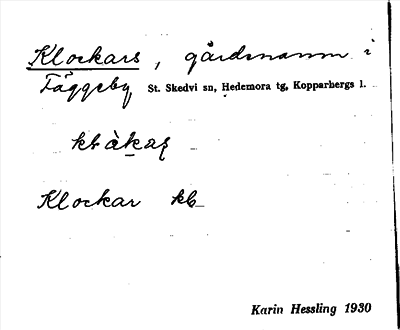 Klockars, gårdsnamn i
Fäggeby St. Skedvi sn, Hedemora tg, Kopparbergs l.
Klockar kb
Karin Hessling 1930